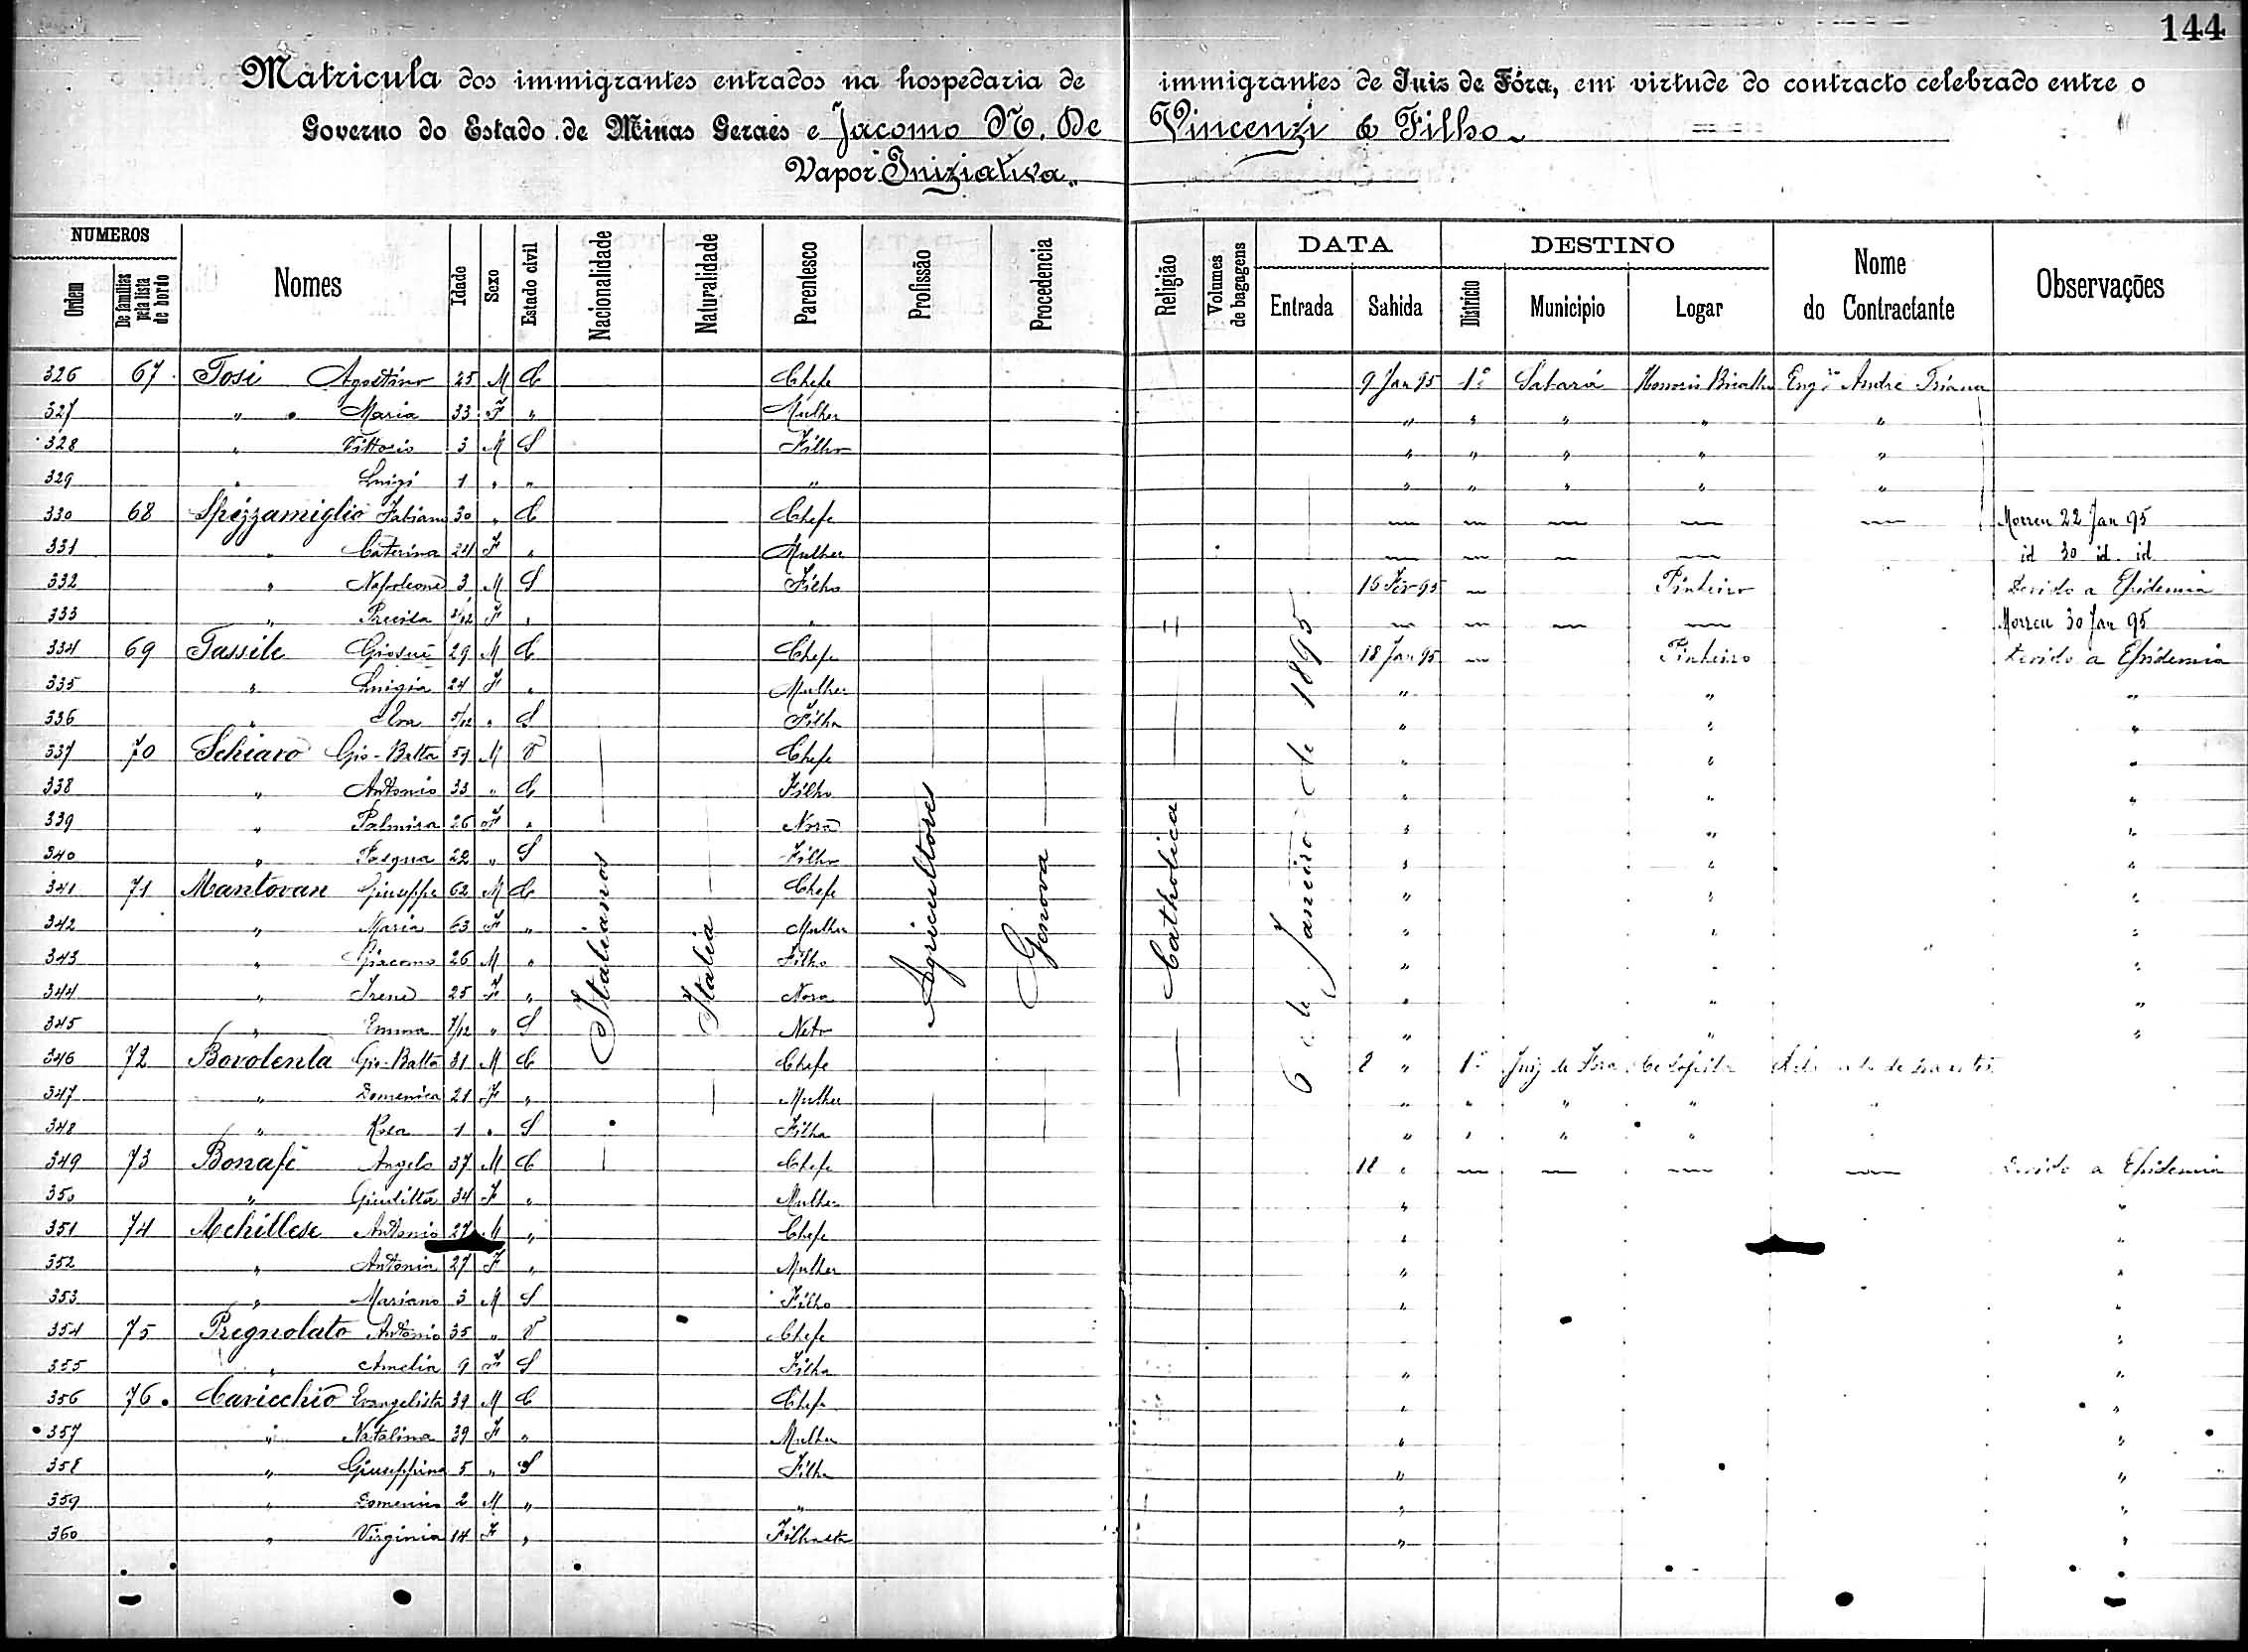 144
Matricula dos immigrantes entrados na hospedaria de immigrantes de Juiz de Fóra, em virtude do contracto celebrado entre o
Governo do Estado de Minas Geraes e Jacomo N. De Vincenzi & Filho
Vapor Iniziativa
NUMEROS DATA DESTINO
Ordem De familias pela lista de bordo Nomes Idade Sexo Estado civil Nacionalidade Naturalidade Parentesco Profissão Procedencia Religião Volumes de bagagens Entrada Sahida Districto Municipio Logar Nome do Contractante Observações
326 67 Tosi Agostino 25 M C Chefe 9 Jan 95 1º Sabará Honorio Bicalho Engro Andre Triana
327 " Maria 33 F " Mulher " " " " "
328 " Vittorio 3 M S Filho " " " " "
329 " Luigi 1 " " " " " " " "
330 68 Spezzamiglio Fabiano 30 " C Chefe — — — — — Morreu 22 Jan 95
331 " Caterina 24 F " Mulher — — — — id 30 id. id
332 " Napoleone 3 M S Filho 16 Fev 95 — Pinheiro Devido a Epidemia
333 " F " " — — — — Morreu 30 Jan 95
334 69 Tassile Giosué 29 M C Chefe 18 Jan 95 — Pinheiro Devido a Epidemia
335 " Luigia 24 F " Mulher " " "
336 " 5/12 " S Filha " " "
337 70 Schiavo Gio-Batta 59 M V Chefe " " "
338 " Antonio 33 " C Filho " " "
339 " Palmira 26 F " Nora " " "
340 " Pasqua 22 " S Filho " " "
341 71 Mantovan Giuseppe 62 M C Chefe " " "
342 " Maria 63 F " Mulher " " "
343 " Giacomo 26 M " Filho " " "
344 " Irene 25 F " Nora " " "
345 " Emma 7/12 " S Neto " " "
346 72 Bovolenta Gio-Batta 31 M C Chefe 8 " 1º Juiz de Fora
347 " Domenica 21 F " Mulher " " " " "
348 " Rosa 1 " S Filha " " " "
349 73 Bonafé Angelo 37 M C Chefe 18 " — — — — Devido a Epidemia
350 " Giuditta 34 F " Mulher " "
351 74 Achillese Antonio 27 M " Chefe " "
352 " Antonia 27 F " Mulher " "
353 " Mariano 3 M S Filho " "
354 75 Pregnolato Antonio 35 " V Chefe " "
355 " Amelia 9 F S Filha " "
356 76 Cavicchio Evangelista 39 M C Chefe " "
357 " Natalina 39 F " Mulher " "
358 " Giuseppina 5 " S Filha " "
359 " Domenico 2 M " " " "
360 " Virginia 14 F " Filhasta " "
Italianos
Italia
Agricultores
Genova
Catholica
6 de Janeiro de 1895